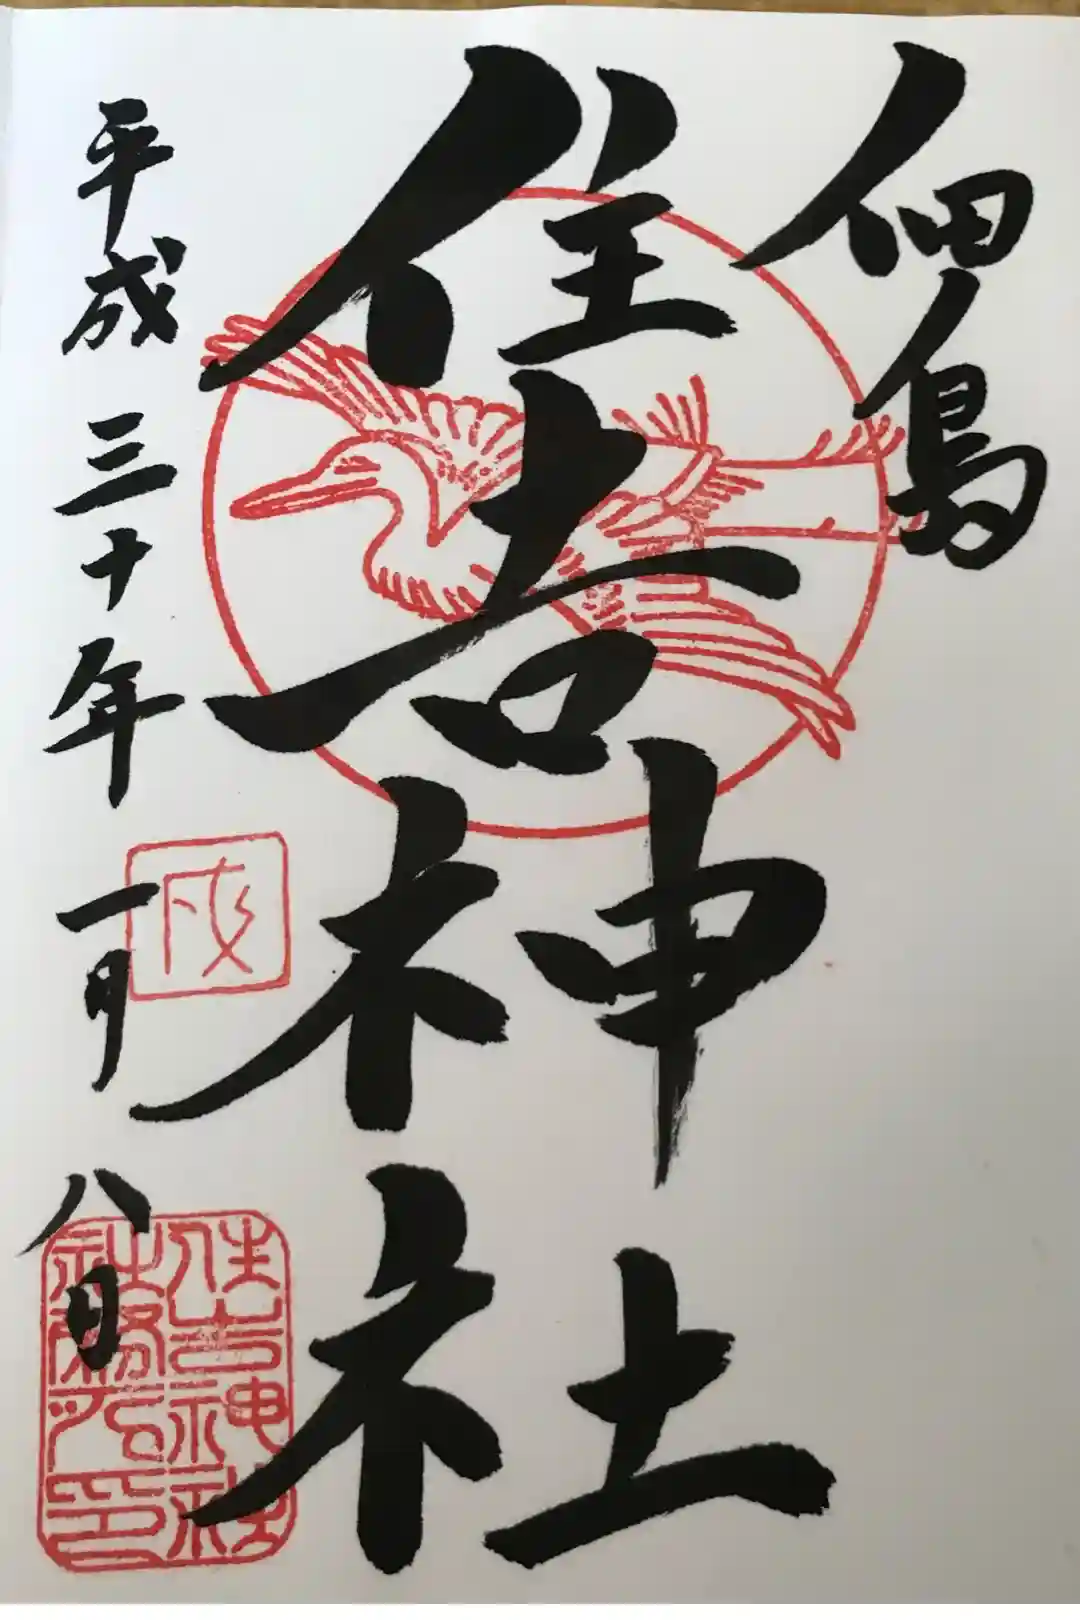 佃島
住吉神社
平成三十年一月八日
戌
住吉神社
社務所印